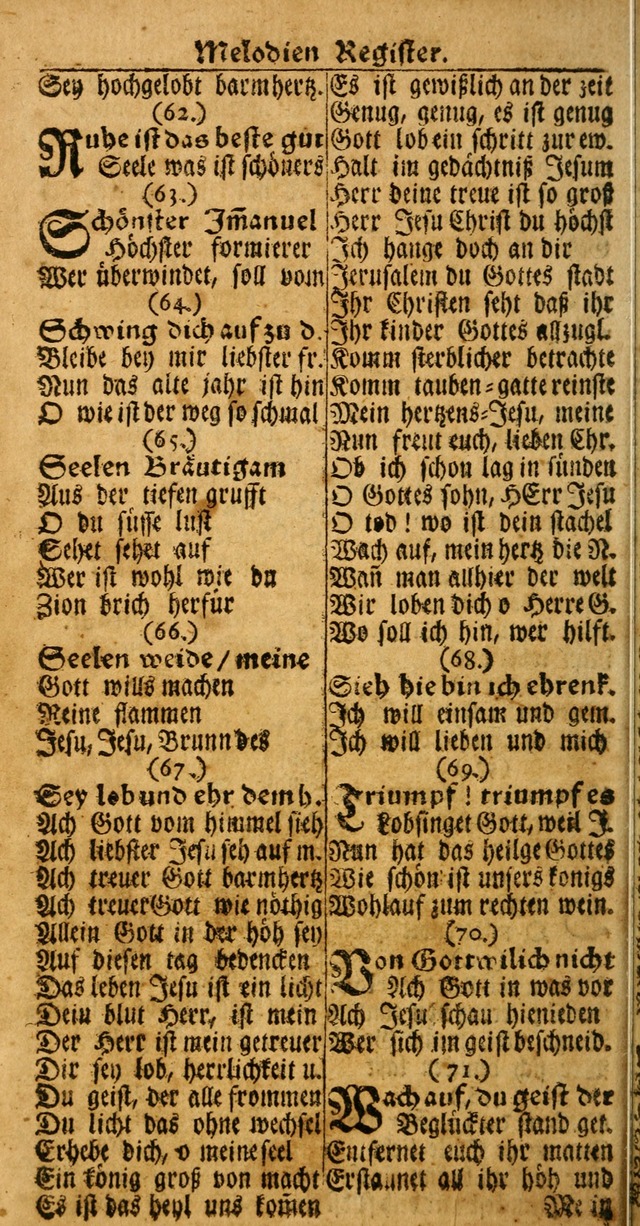 Melodien Register.
Sey hochgelobt barmhertz.
(62.)
Ruhe ist das beste gut
Seele was ist schöners
(63.)
Schönster Im̃anuel
Höchster formierer
Wer überwindet, soll vom
(64.)
Schwing dich auf zu d.
Bleibe bey mir liebster fr.
Nun das alte jahr ist hin
O wie ist der weg so schmal
(65.)
Seelen Bräutigam
Aus der tiefen grufft
O du süsse lust
Sehet sehet auf
Wer ist wohl wie du
Zion brich herfür
(66.)
Seelen weide/meine
Gott wills machen
Meine flammen
Jesu, Jesu, Brunn des
(67.)
Sey lob und ehr dem h.
Ach Gott vom himmel sieh
Ach liebster Jesu seh auf m.
Ach treuer Gott barmhertz
Ach treuer Gott wie nöthig
Allein Gott in der höh sey
Auf diesen tag bedencken
Das leben Jesu ist ein licht
Dein blut Herr, ist mein
Der Herr ist mein getreuer
Dir sey lob, herrlichkeit u.
Du geist, der alle frommen
Du licht das ohne wechsel
Erhebe dich, o meine seel
Ein könig groß von macht
Es ist das heyl uns kom̃en
Es ist gewißlich an der zeit
Genug, genug, es ist genug
Gott lob ein schritt zur ew.
Halt im gedächtniß Jesum
Herr deine treue ist so groß
Herr Jesu Christ du höchst
Ich hange doch an dir
Jerusalem du Gottes stadt
Ihr Christen seht daß ihr
Ihr kinder Gottes allzugl.
Komm sterblicher betrachte
Komm tauben-gatte reinste
Mein hertzens-Jesu, meine
Nun freut euch, lieben Chr.
Ob ich schon lag in sünden
O Gottes sohn, HErr Jesu
O tod! wo ist dein stachel
Wach auf, mein hertz die N.
Wañ man allhier der welt
Wir loben dich o Herre G.
Wo soll ich hin, wer hilft.
(68.)
Sieh hie bin ich ehrenk.
Ich will einsam und gem.
Ich will lieben und mich
(69.)
Triumpf! triumpf es
Lobsinget Gott, weil J.
Nun hat das heilge Gottes
Wie schön ist unsers königs
Wohlauf zum rechten wein.
(70.)
Von Gott wil ich nicht
Ach Gott in was vor
Ach Jesu schau hienieden
Wer sich im geist beschneid.
(71.)
Wach auf, du geist der
Beglückter stand get.
Entfernet euch ihr matten
Erstaunet all ihr höh und
Me in